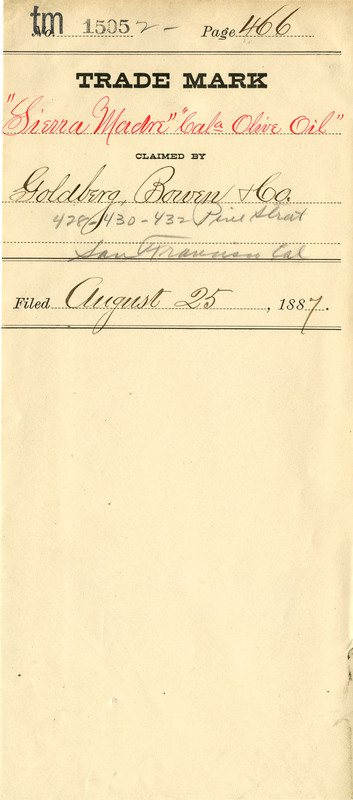 tm No 1505 2- Page 466
TRADE MARK
"Sierra Madre" "Cala Olive Oil"
CLAIMED BY
Goldberg, Bowen & Co.
428-430-432 Pine Street
San Francisco Cal
Filed August 25, 1887.